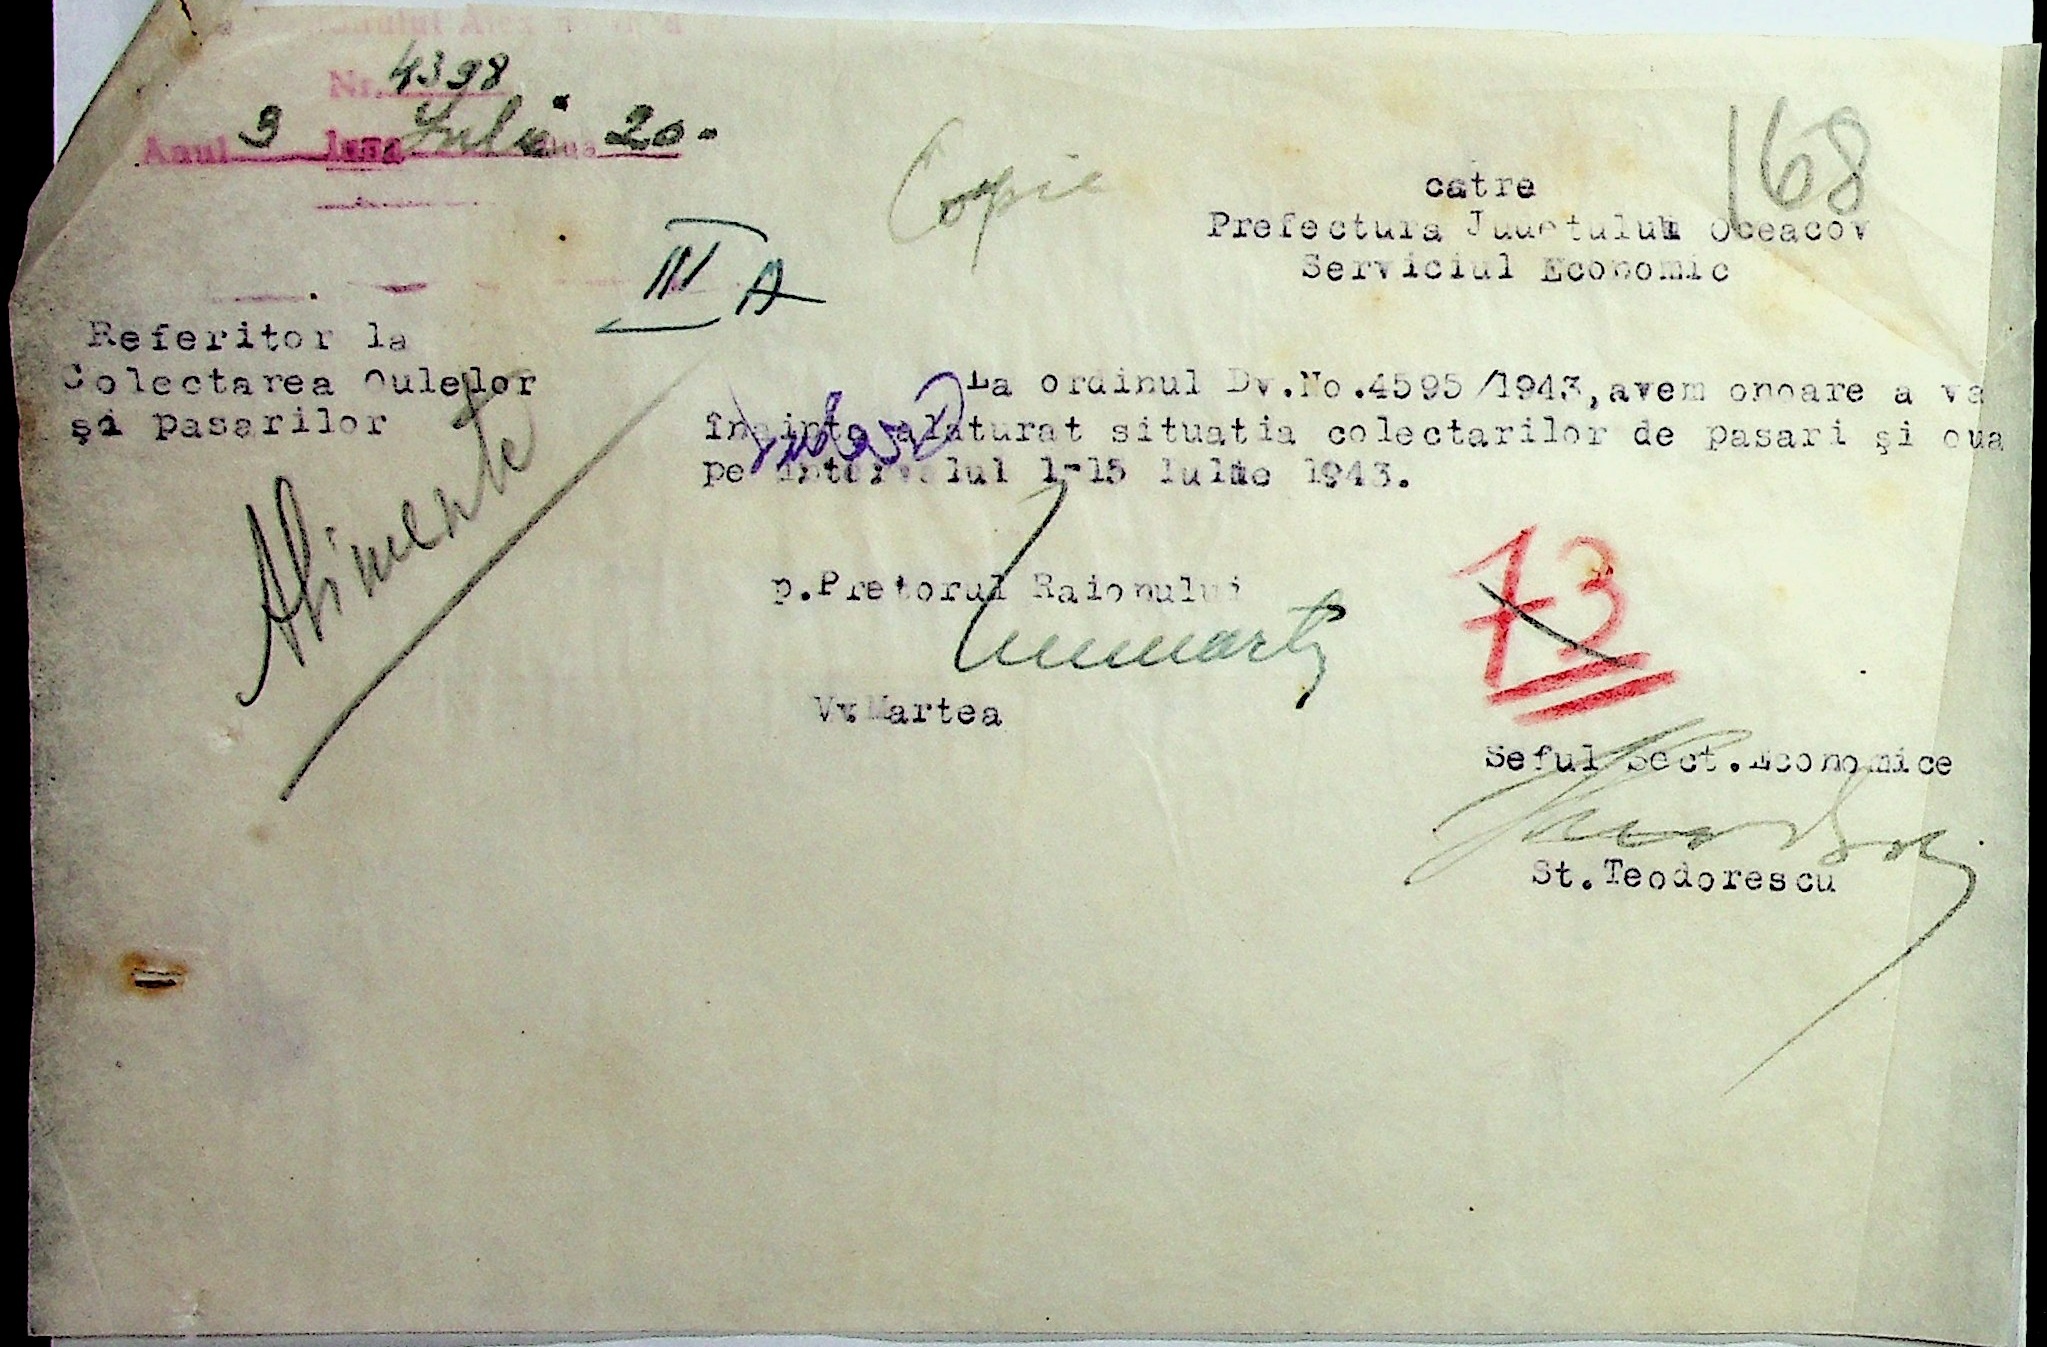 Nr. 4398
Anul 3 luna Iulie Ziua 20
Copie
168
catre
Prefectura Judetului Oceacov
Serviciul Economic
III A
Referitor la
Colectarea Ouleлor
şi pasarilor
Alimente
La ordinul Dv.No.4595/1943,avem onoare a va
înainta alaturat situatia colectarilor de pasari şi oua
pe intervalul 1-15 Iulie 1943.
p.Pretorul Raionului
73
Vv.Martea
Seful Sect.Economice
St.Teodorescu